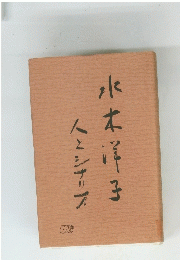 水木洋子
人とシナリオ